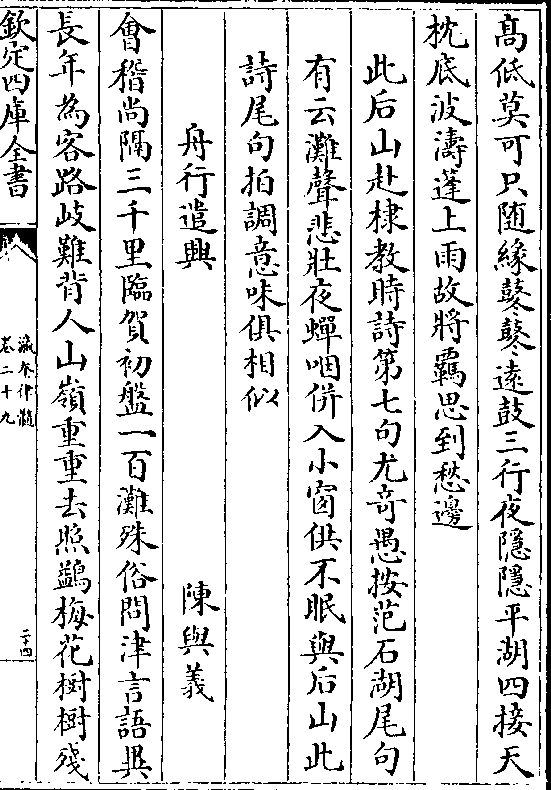 髙低莫可只随緣鼕鼕遠鼓三行夜隱隱平湖四接天
枕底波濤蓬上雨故將羈思到愁邊
此后山赴棣教時詩第七句尤竒愚按范石湖尾句
有云灘聲悲壯夜蟬咽併入小窗供不眠與后山此
詩尾句拍調意味俱相似
舟行遣興 陳與義
㑹稽尚隔三千里臨賀初盤一百灘殊俗問津言語異
長年為客路歧難背人山嶺重重去照鷁梅花樹樹殘
欽定四庫全書
瀛奎律髓
卷二十九
二十四